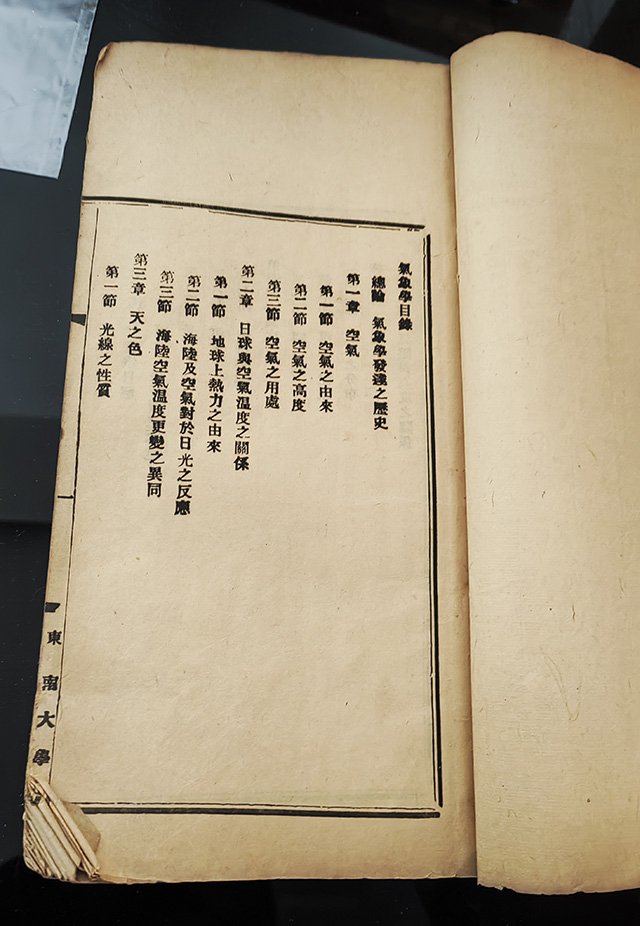 氣象學目錄
總論 氣象學發達之歷史
第一章 空氣
第一節 空氣之由來
第二節 空氣之高度
第三節 空氣之用處
第二章 日球與空氣溫度之關係
第一節 地球上熱力之由來
第二節 海陸及空氣對於日光之反應
第三節 海陸空氣溫度更變之異同
第三章 天之色
第一節 光線之性質
東南大學